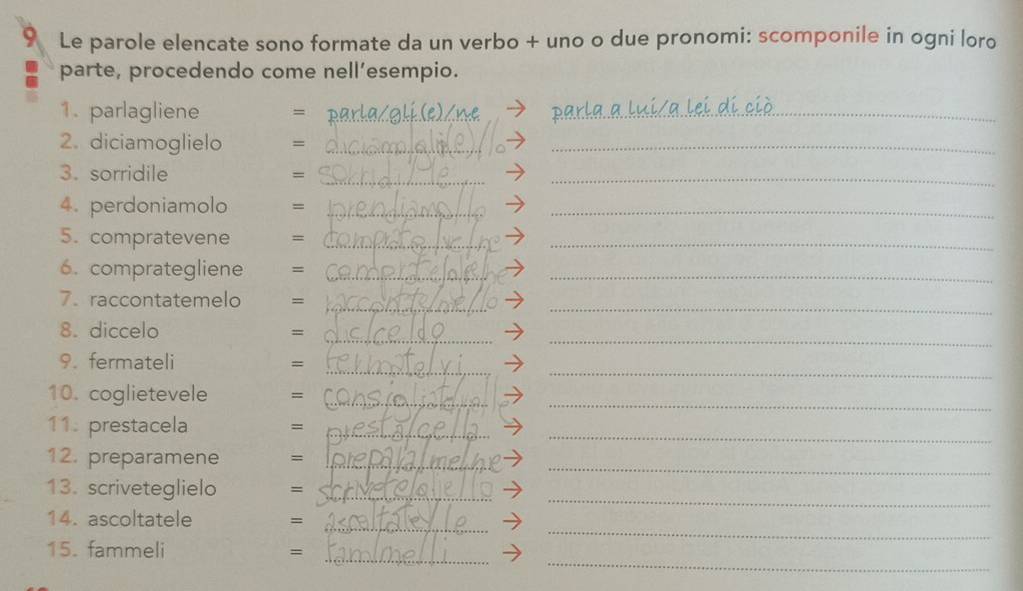 9 Le parole elencate sono formate da un verbo + uno o due pronomi: scomponile in ogni loro
parte, procedendo come nell'esempio.
1. parlagliene = parla/gli(e)/ne → parla a lui/a lei di ciò
2. diciamoglielo = diciamo/gli(e)/lo →
3. sorridile = sorridi/le →
4. perdoniamolo = →
5. compratevene = comprate/ve/ne →
6. comprategliene = →
7. raccontatemelo = →
8. diccelo = →
9. fermateli = →
10. coglietevele = →
11. prestacela = presta/ce/la →
12. preparamene = prepara/me/ne →
13. scriveteglielo = →
14. ascoltatele = ascoltate/le →
15. fammeli = fam/me/li →